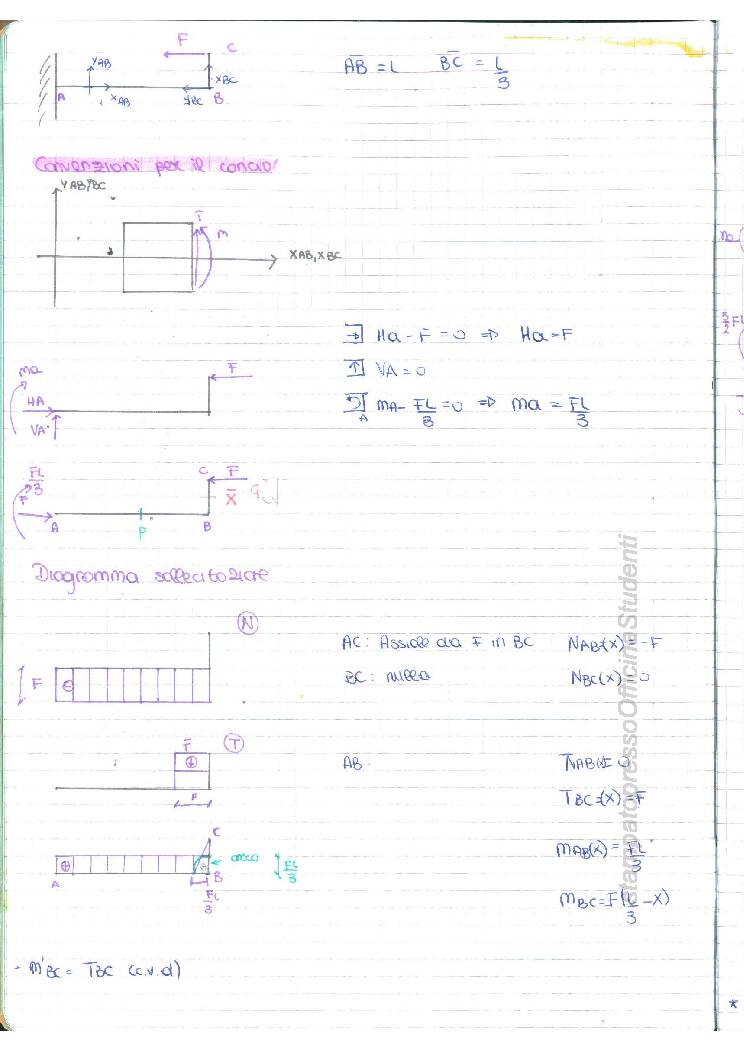 F C
AB = L BC = L/3
YAB XBC
A XAB YBC B
Convenzioni per il concio
YAB,YBC
T
M
XAB, XBC
Ha - F = 0 => Ha = F
VA = 0
A MA - FL/3 = 0 => Ma = FL/3
Ma
HA F
VA
FL/3 C F
F X
A P B
Diagramma sollecitazione
N
F ⊖
AC: Assiale da F in BC NAB(x) = -F
BC: nulla NBC(x) = 0
F T
⊕
F
AB TAB(x) = 0
TBC(x) = F
C
⊕ arco FL/3
A B
FL/3
MAB(x) = FL/3
MBC = F(L/3 - x)
- M'BC = TBC (c.v.d)
*
stampatopressoOfficinaStudenti